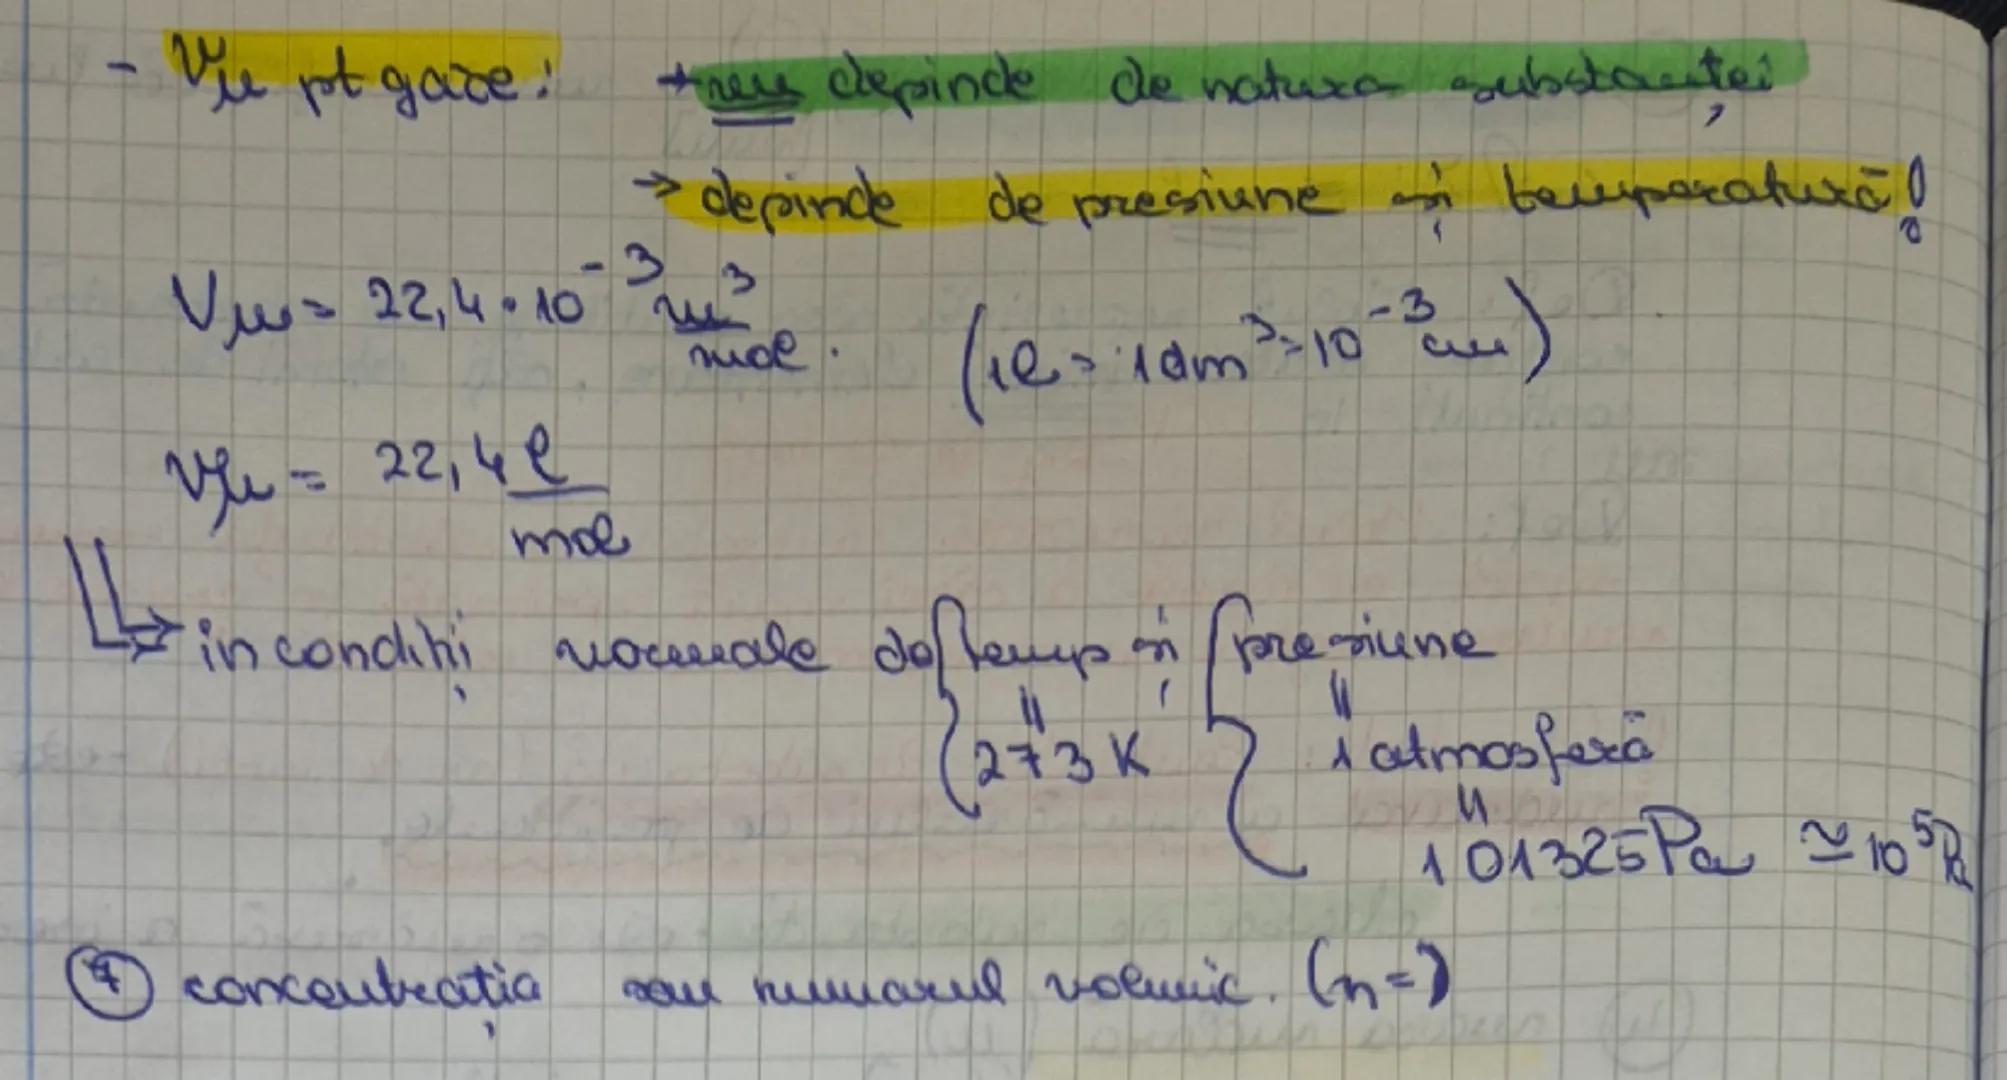 - Vμ pt gaze: → nu depinde de natura substanței
→ depinde de presiune și temperatură!
Vμ = 22,4 · 10⁻³ m³/mol. (1l = 1dm³ = 10⁻³ cm)
Vμ = 22,4 l/mol
în condiții normale de { temp și { presiune
" "
273 K 1 atmosferă
"
101325 Pa ≃ 10⁵ Pa
⑦ concentrația sau numărul volumic. (n=)